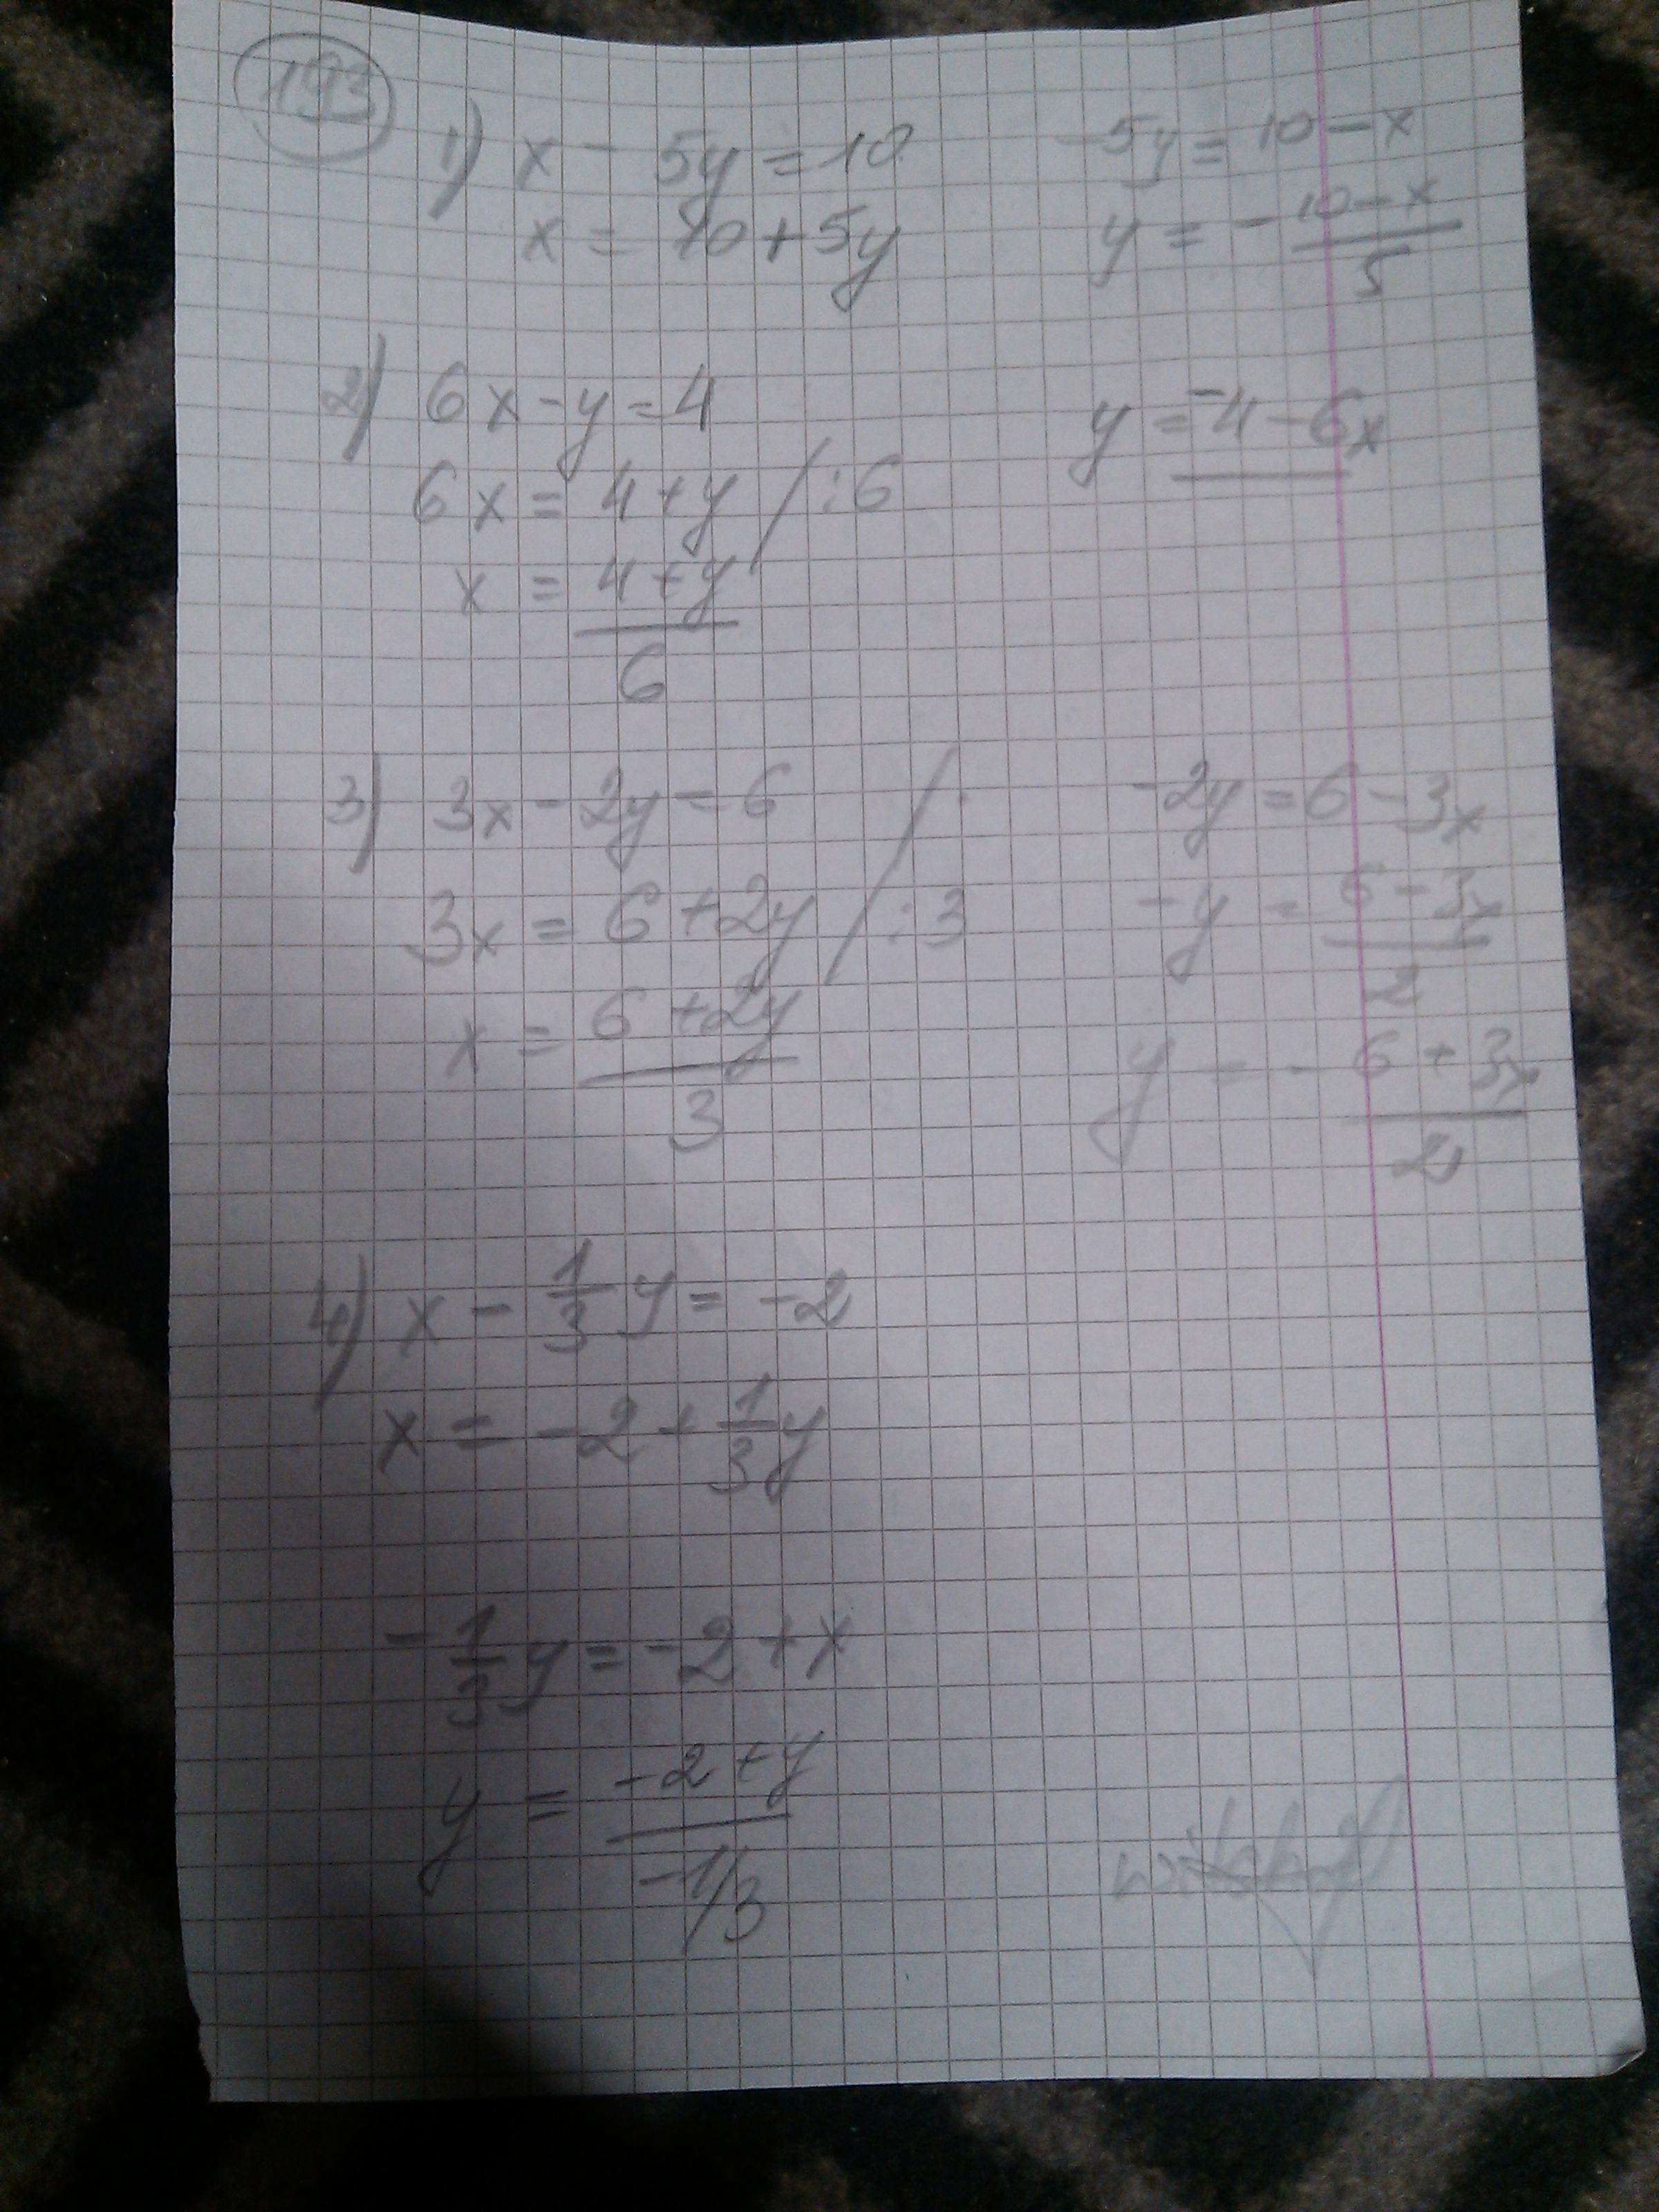 193
1) x - 5y = 10
x = 10 + 5y
-5y = 10 - x
y = - 10 - x / 5
2) 6x - y = 4
6x = 4 + y / : 6
x = 4 + y / 6
y = -4 - 6x
3) 3x - 2y = 6
3x = 6 + 2y / : 3
x = 6 + 2y / 3
-2y = 6 - 3x
-y = 6 - 3x / 2
y = - 6 + 3x / 2
4) x - 1/3 y = -2
x = -2 + 1/3 y
- 1/3 y = -2 + x
y = -2 + y / -1/3